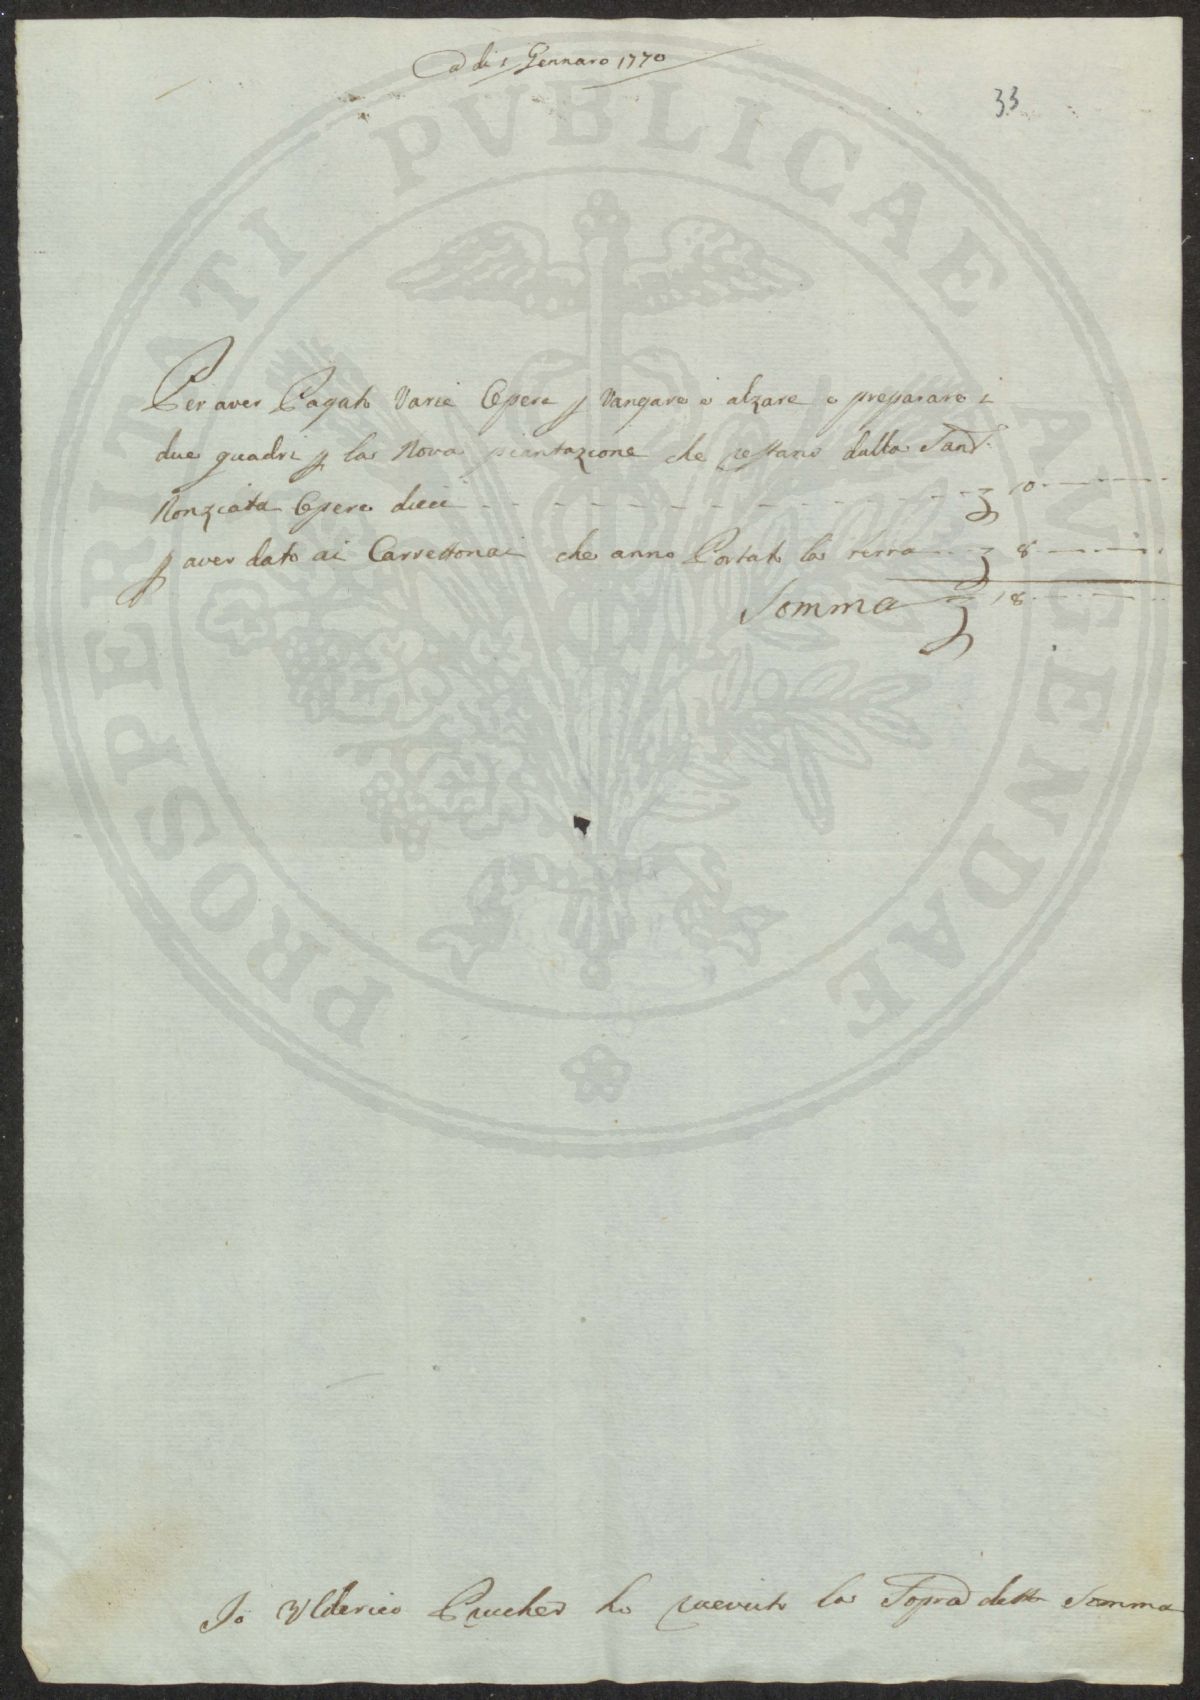 A di 1 Gennaro 1770
33
Per aver Pagato Varie Opere p Vangare e alzare e preparare i
due quadri p la Nova piantazione che restano dalla Sant.
Nonziata Opere dieci 10
p aver dato ai Carrettonai che anno Portato la terra 8
Somma 18
Io Ulderico Prucher ho ricevuto la Sopra detta Somma
PROSPERITATI PVBLICAE AVGENDAE